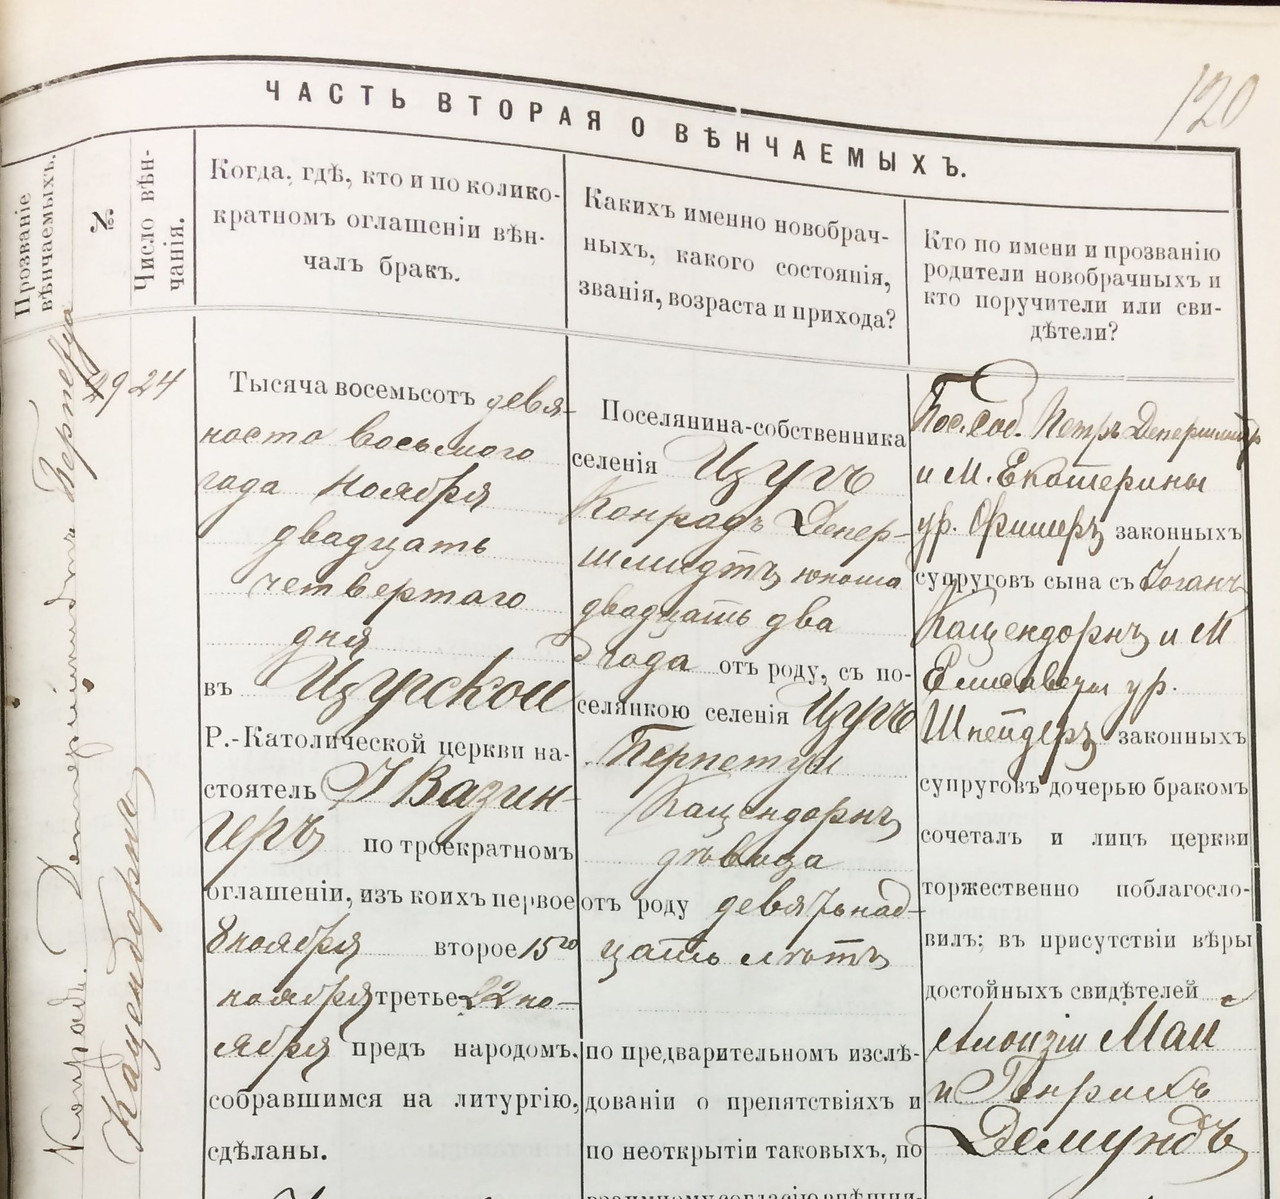 120
ЧАСТЬ ВТОРАЯ О ВѢНЧАЕМЫХЪ.
Прозваніе
вѣнчаемыхъ.
№
Число вѣн-
чанія.
Когда, гдѣ, кто и по колико-
кратномъ оглашеніи вѣн-
чалъ бракъ.
Какихъ именно новобрач-
ныхъ, какого состоянія,
званія, возраста и прихода?
Кто по имени и прозванію
родители новобрачныхъ и
кто поручители или сви-
дѣтели?
Конрадъ Денершмидтъ Перпетуа
Кацендорнъ
29
24
Тысяча восемьсотъ девя-
носто восьмого
года ноября
двадцать
четвертаго
дня
въ Цугской
Р.-Католической церкви на-
стоятель І Вазин-
геръ по троекратномъ
оглашеніи, изъ коихъ первое
8 ноября второе 15го
ноября третье 22 но-
ября предъ народомъ,
собравшимся на литургію,
сдѣланы.
Поселянина-собственника
селенія Цугъ
Конрадъ Денер-
шмидтъ юноша
двадцать два
года отъ роду, съ по-
селянкою селенія Цугъ
Перпетуа
Кацендорнъ
дѣвица
отъ роду девятьнад-
цать лѣтъ
по предварительномъ изслѣ-
дованіи о препятствіяхъ и
по неоткрытіи таковыхъ, по
взаимному согласію
Пос. соб. Петръ Денершмидтъ
и М. Екатерины
ур. Фишеръ законныхъ
супруговъ сына съ Іоганъ
Кацендорнъ и М
Елисаветы ур.
Шнейдеръ законныхъ
супруговъ дочерью бракомъ
сочеталъ и лицъ церкви
торжественно поблагосло-
вилъ; въ присутствіи вѣры
достойныхъ свидѣтелей
Алоизій Май
и Генрихъ
Демундъ